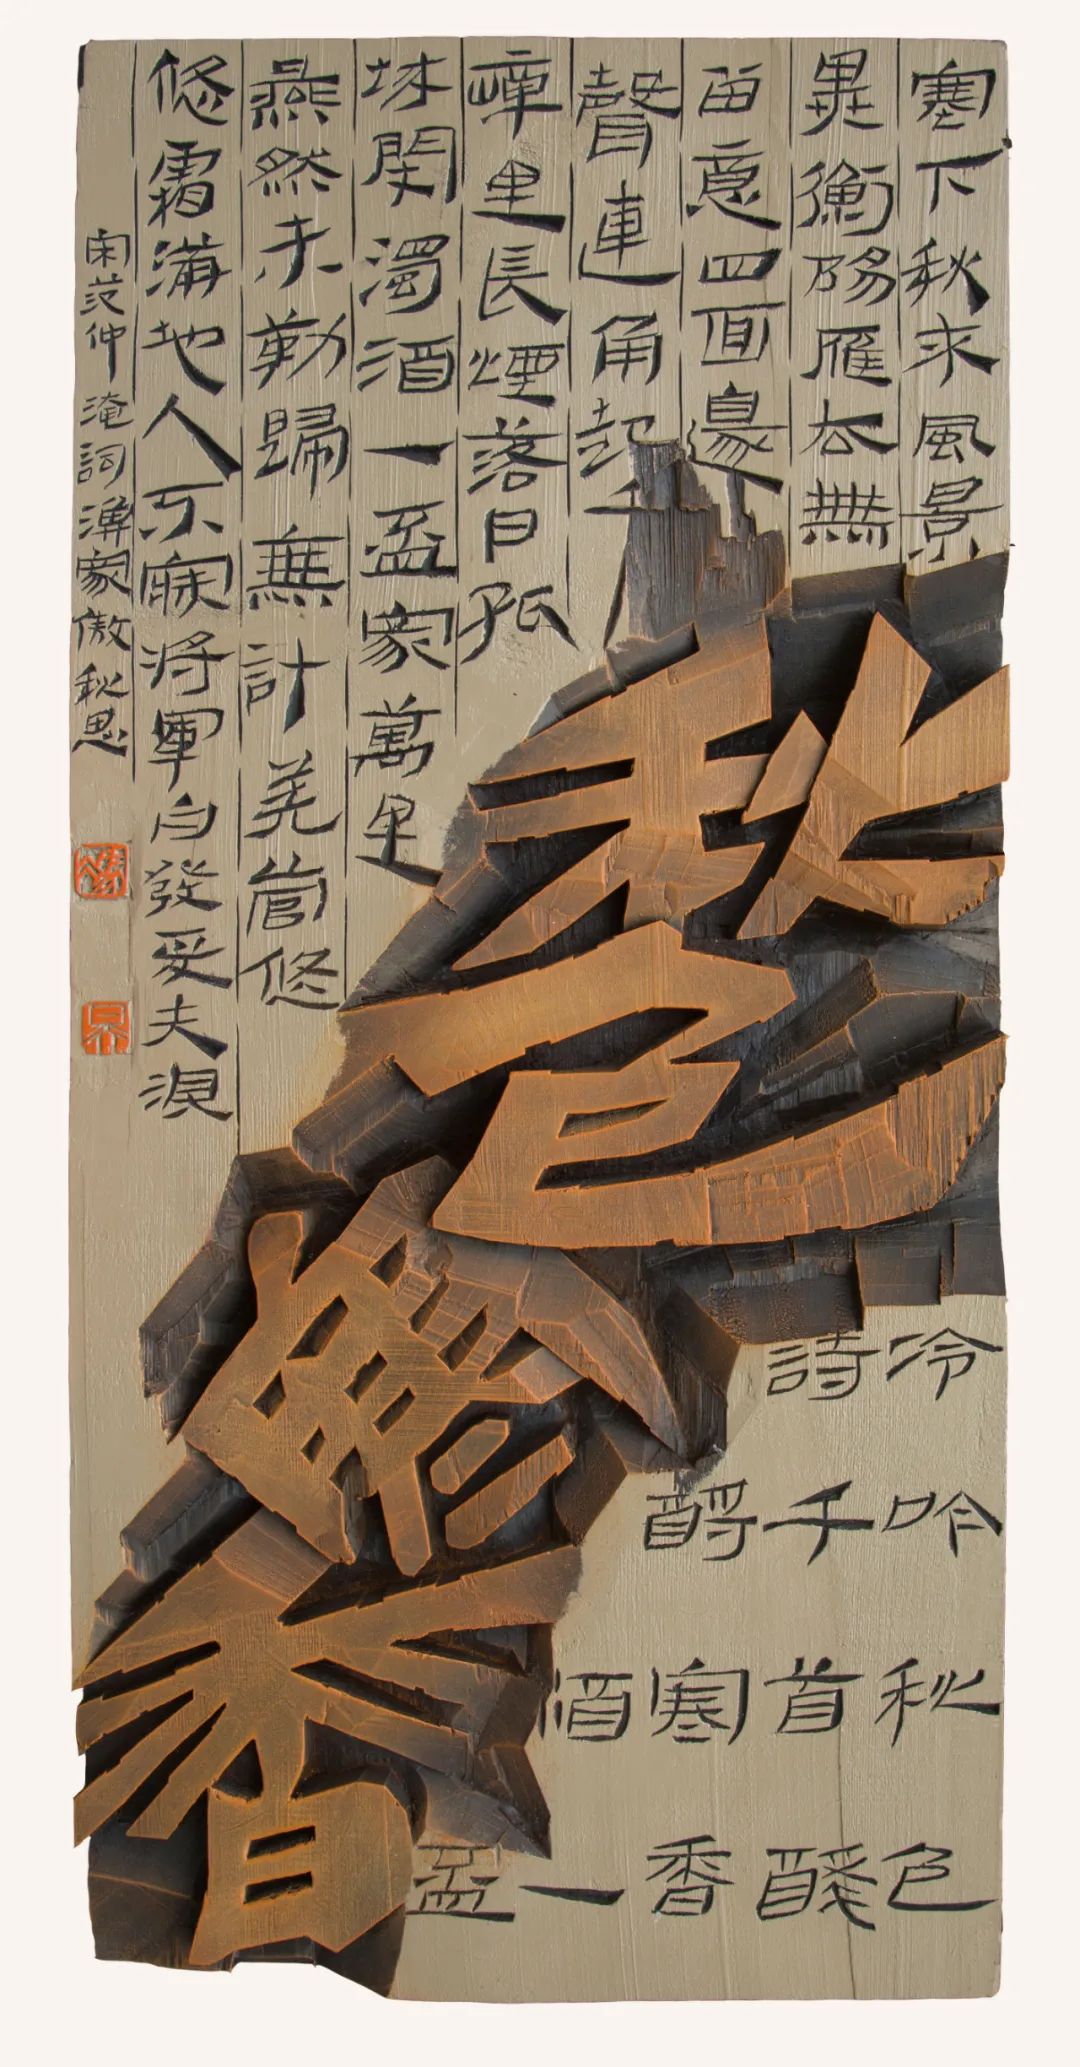 塞下秋來風景
異衡陽雁去無
留意四面邊
聲連角起
嶂里長煙落日孤
城閉濁酒一盃家萬里
燕然未勒歸無計羌管悠
悠霜滿地人不寐將軍白發征夫淚
宋范仲淹詞漁家傲秋思
秋色寒香
冷吟秋色
詩千首醉
酹寒香
酒一
盃